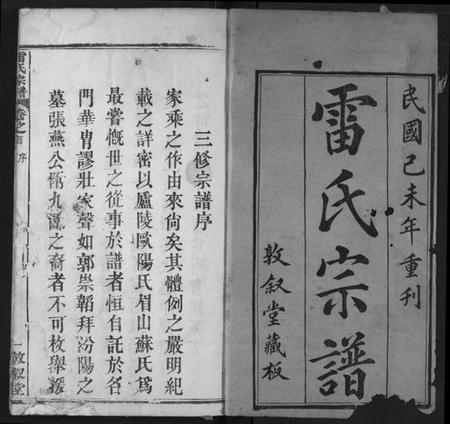 民國己未年重刊
雷氏宗譜
敦叙堂藏板
三修宗譜序
家乘之作由來尙矣其體例之嚴明紀
載之詳密以廬陵歐陽氏眉山蘇氏爲
最嘗慨世之從事於譜者恒自託於名
門華胄謬壯家聲如郭崇韜拜汾陽之
墓張燕公慚九齡之裔者不可枚舉
雷氏宗譜
卷之首
序
一
敦叙堂